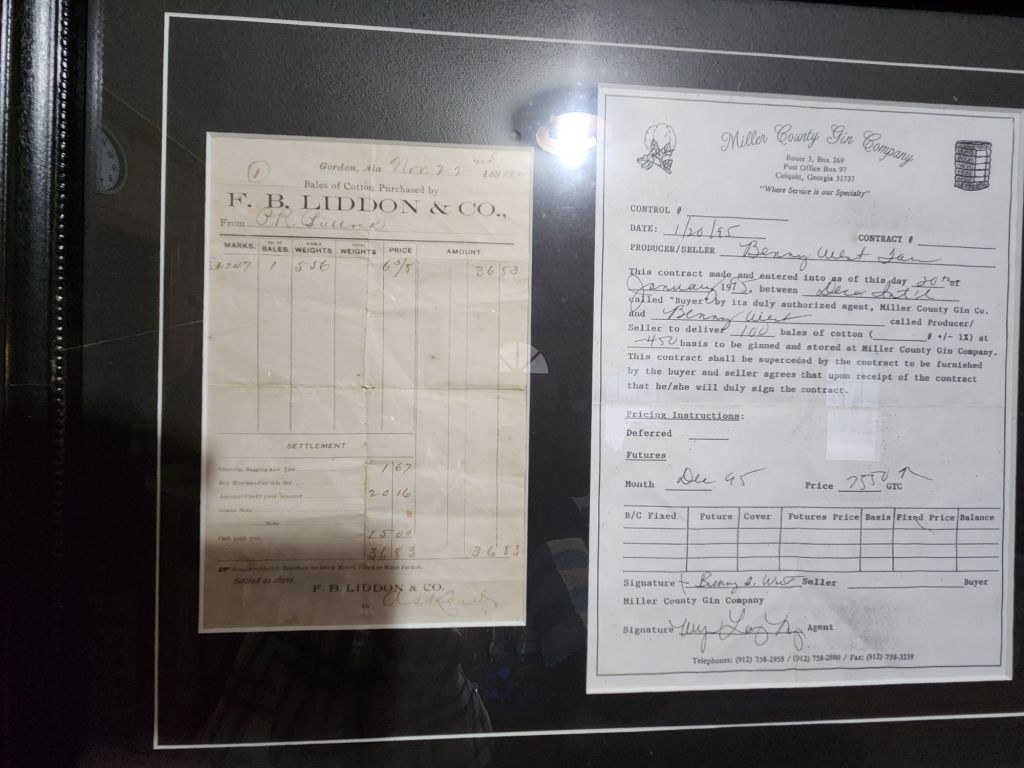 1
Gordon, Ala Nov. 22 nd 189
Bales of Cotton Purchased by
F. B. LIDDON & CO.,
From P.R. Bullock
MARKS. NO. OF BALES. SINGLE WEIGHTS TOTAL WEIGHTS PRICE AMOUNT.
247 1 536 6 36 83
SETTLEMENT
Ginning, Bagging and Ties 1 67
B't Merchandise this day
Amount Credit your account 20 16
Note
Cash paid you 15 00
36 83 36 83
Settled as above.
F. B. LIDDON & CO.
BY
Miller County Gin Company
Route 3, Box 269
Post Office Box 97
Colquitt, Georgia 31737
"Where Service is our Specialty"
CONTROL #
DATE: 1/20/95 CONTRACT #
PRODUCER/SELLER Benny West Farm
This contract made and entered into as of this day 20th of
January 1995, between Deca Int'l
called "Buyer" by its duly authorized agent, Miller County Gin Co.
and Benny West called Producer/
Seller to deliver 100 bales of cotton ( # +/- 1%) at
-450 basis to be ginned and stored at Miller County Gin Company.
This contract shall be superceded by the contract to be furnished
by the buyer and seller agrees that upon receipt of the contract
that he/she will duly sign the contract.
Pricing Instructions:
Deferred
Futures
Month Dec 95 Price 7550 GTC
B/C Fixed Future Cover Futures Price Basis Fixed Price Balance
Signature Benny D. West Seller Buyer
Miller County Gin Company
Signature Agent
Telephones: (912) 758-2958 / (912) 758-2860 / Fax: (912) 758-3238